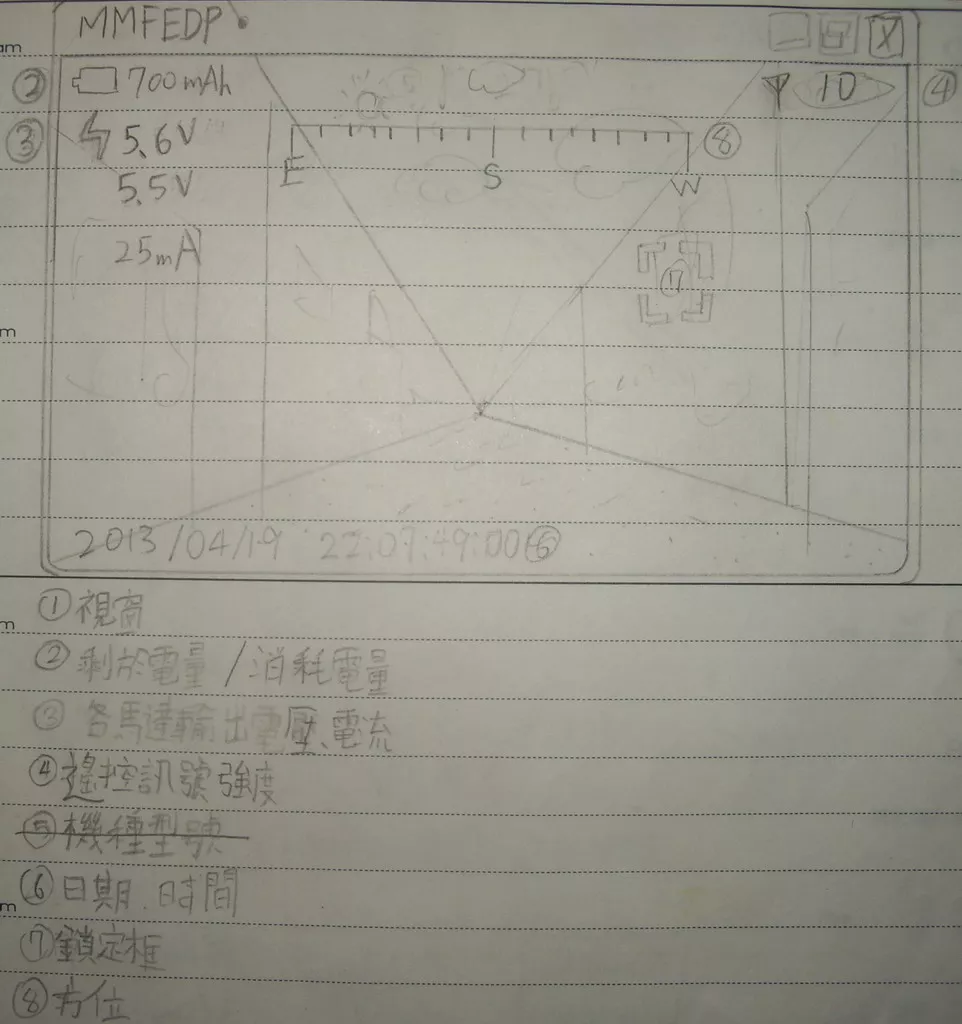 MMFEDP
② 700mAh 10 ④
③ 5.6V ⑧
E S W
5.5V
25mA
⑰
2013/04/19 22:07:49:00 ⑥
① 視窗
② 剩於電量/消耗電量
③ 各馬達輸出電壓、電流
④ 遙控訊號強度
⑤ 機種型號
⑥ 日期.時間
⑦ 鎖定框
⑧ 方位